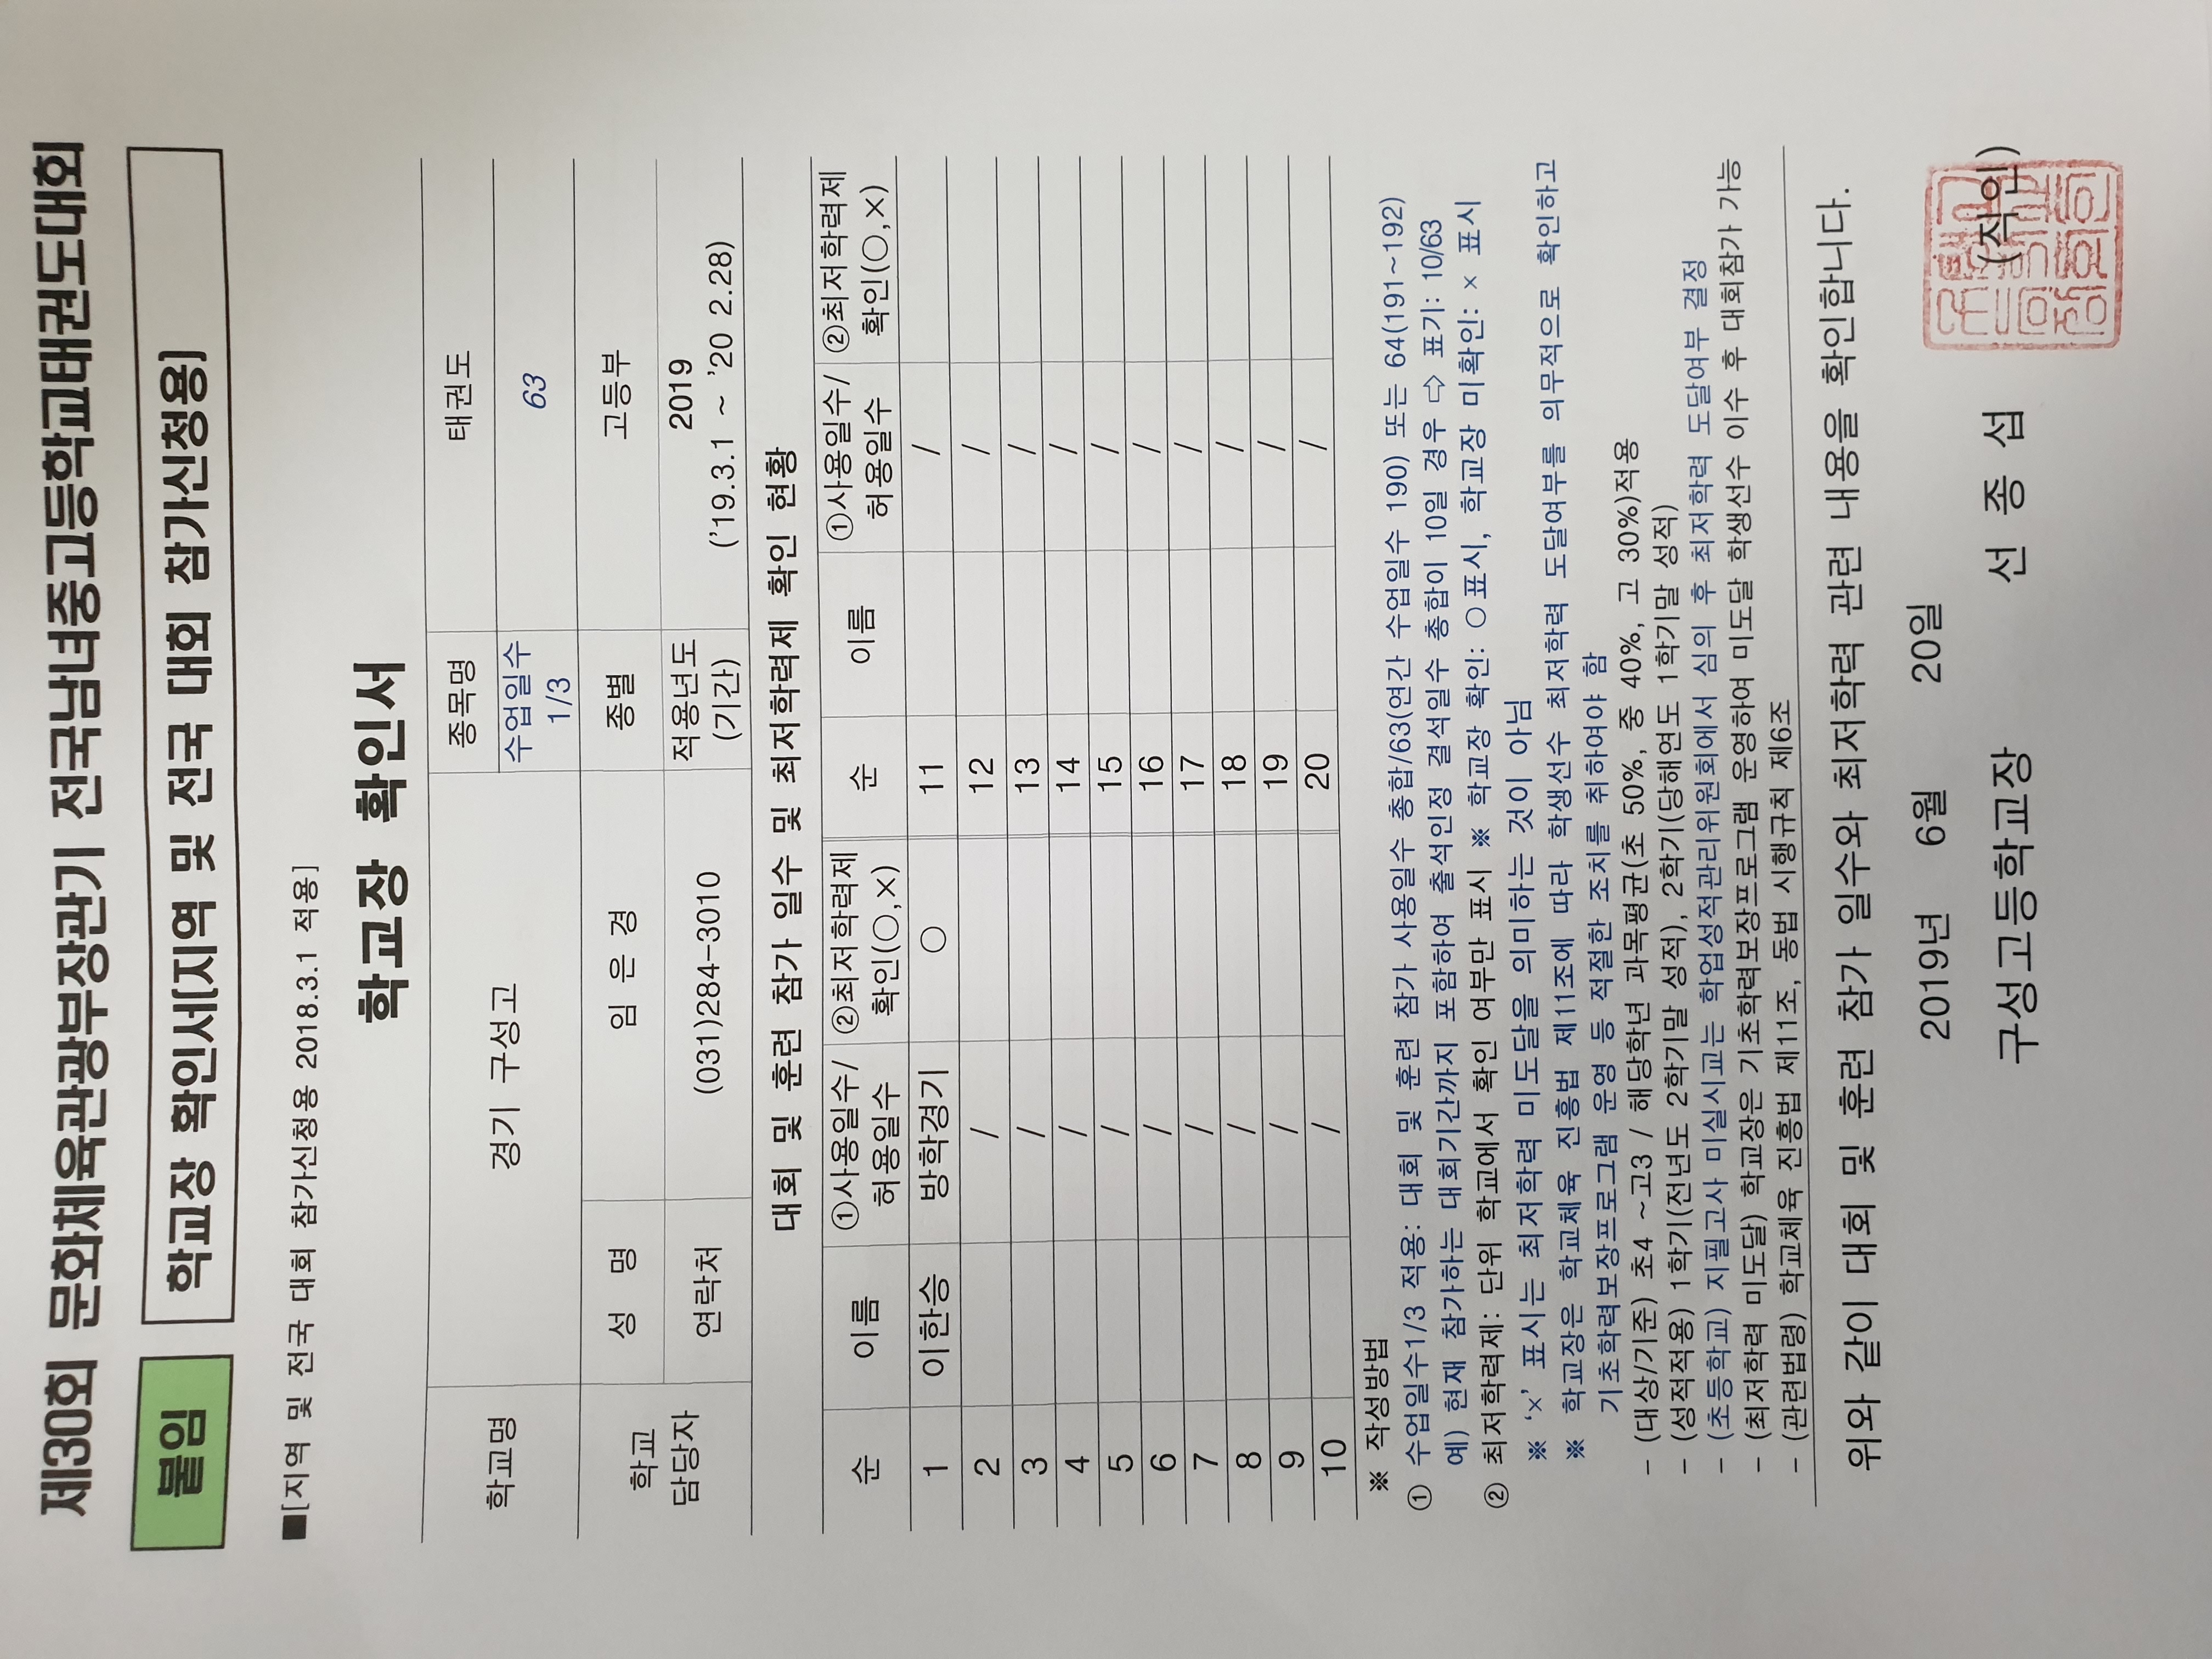 제30회 문화체육관광부장관기 전국남녀중고등학교태권도대회
붙임 학교장 확인서[지역 및 전국 대회 참가신청용]
■[지역 및 전국 대회 참가신청용 2018.3.1 적용]
학교장 확인서
학교명 경기 구성고 종목명 태권도
수업일수 1/3 63
학교 담당자 성 명 임 은 경 종별 고등부
연락처 (031)284-3010 적용년도 (기간) 2019 ('19.3.1 ~ '20 2.28)
대회 및 훈련 참가 일수 및 최저학력제 확인 현황
순 이름 ①사용일수/허용일수 ②최저학력제 확인(○,×) 순 이름 ①사용일수/허용일수 ②최저학력제 확인(○,×)
1 이한승 방학경기 ○ 11 /
2 / 12 /
3 / 13 /
4 / 14 /
5 / 15 /
6 / 16 /
7 / 17 /
8 / 18 /
9 / 19 /
10 / 20 /
※ 작성방법
① 수업일수1/3 적용: 대회 및 훈련 참가 사용일수 총합/63(연간 수업일수 190) 또는 64(191~192)
예) 현재 참가하는 대회기간까지 포함하여 출석인정 결석일수 총합이 10일 경우 ⇨ 표기: 10/63
② 최저학력제: 단위 학교에서 확인 여부만 표시 ※ 학교장 확인: ○ 표시, 학교장 미확인: × 표시
※ ‘×’ 표시는 최저학력 미도달을 의미하는 것이 아님
※ 학교장은 학교체육 진흥법 제11조에 따라 학생선수 최저학력 도달여부를 의무적으로 확인하고
기초학력보장프로그램 운영 등 적절한 조치를 취하여야 함
- (대상/기준) 초4 ~고3 / 해당학년 과목평균(초 50%, 중 40%, 고 30%)적용
- (성적적용) 1학기(전년도 2학기말 성적), 2학기(당해연도 1학기말 성적)
- (초등학교) 지필고사 미실시교는 학업성적관리위원회에서 심의 후 최저학력 도달여부 결정
- (최저학력 미도달) 학교장은 기초학력보장프로그램 운영하여 미도달 학생선수 이수 후 대회참가 가능
- (관련법령) 학교체육 진흥법 제11조, 동법 시행규칙 제6조
위와 같이 대회 및 훈련 참가 일수와 최저학력 관련 내용을 확인합니다.
2019년 6월 20일
구성고등학교장 선 종 섭 (직인)